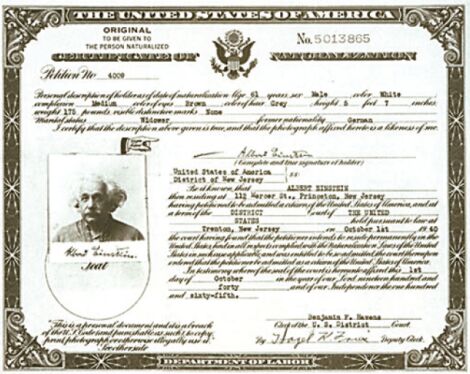 THE UNITED STATES OF AMERICA
ORIGINAL
TO BE GIVEN TO
THE PERSON NATURALIZED
No. 5013865
CERTIFICATE OF NATURALIZATION
Petition No 4009
Personal description of holder as of date of naturalization: Age 61 years; sex Male color White
complexion Medium color of eyes Brown color of hair Grey height 5 feet 7 inches
weight 175 pounds; visible distinctive marks None
Marital status Widower former nationality German
I certify that the description above given is true, and that the photograph affixed hereto is a likeness of me.
Albert Einstein
(Complete and true signature of holder)
United States of America
District of New Jersey
ss:
Be it known, that ALBERT EINSTEIN
then residing at 112 Mercer St., Princeton, New Jersey
having petitioned to be admitted a citizen of the United States of America, and at
a term of the DISTRICT Court of THE UNITED
STATES held pursuant to law at
Trenton, New Jersey on October 1st 1940
the court having found that the petitioner intends to reside permanently in the
United States, had in all respects complied with the Naturalization Laws of the United
States in such case applicable, and was entitled to be so admitted, the court thereupon
ordered that the petitioner be admitted as a citizen of the United States of America.
In testimony whereof the seal of the court is hereunto affixed this 1st
day of October in the year of our Lord nineteen hundred and
forty and of our Independence the one hundred
and sixty-fifth.
Albert Einstein.
Seal
Benjamin F. Havens
Clerk of the U. S. District Court.
By Deputy Clerk.
DEPARTMENT OF LABOR